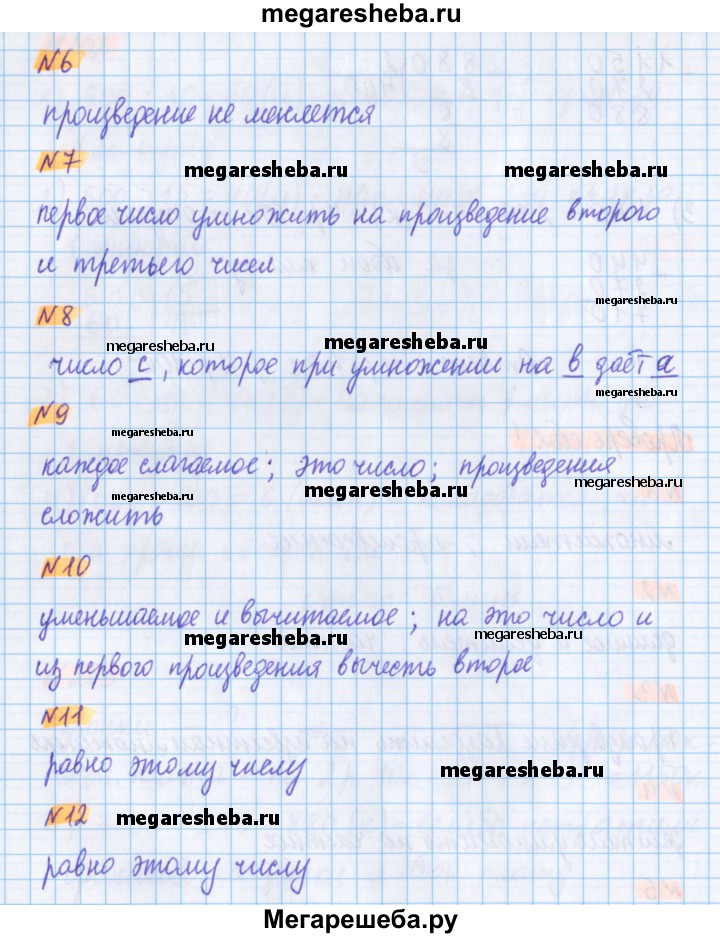 megaresheba.ru
N6
произведение не меняется
N7
megaresheba.ru megaresheba.ru
первое число умножить на произведение второго
и третьего чисел
megaresheba.ru
N8
megaresheba.ru megaresheba.ru
число с, которое при умножении на в даёт а
megaresheba.ru
N9
megaresheba.ru
каждое слагаемое; это число; произведения
megaresheba.ru megaresheba.ru megaresheba.ru
сложить
N10
уменьшаемое и вычитаемое; на это число и
megaresheba.ru megaresheba.ru
из первого произведения вычесть второе
N11
равно этому числу
megaresheba.ru
N12 megaresheba.ru
равно этому числу
Мегарешеба.ру